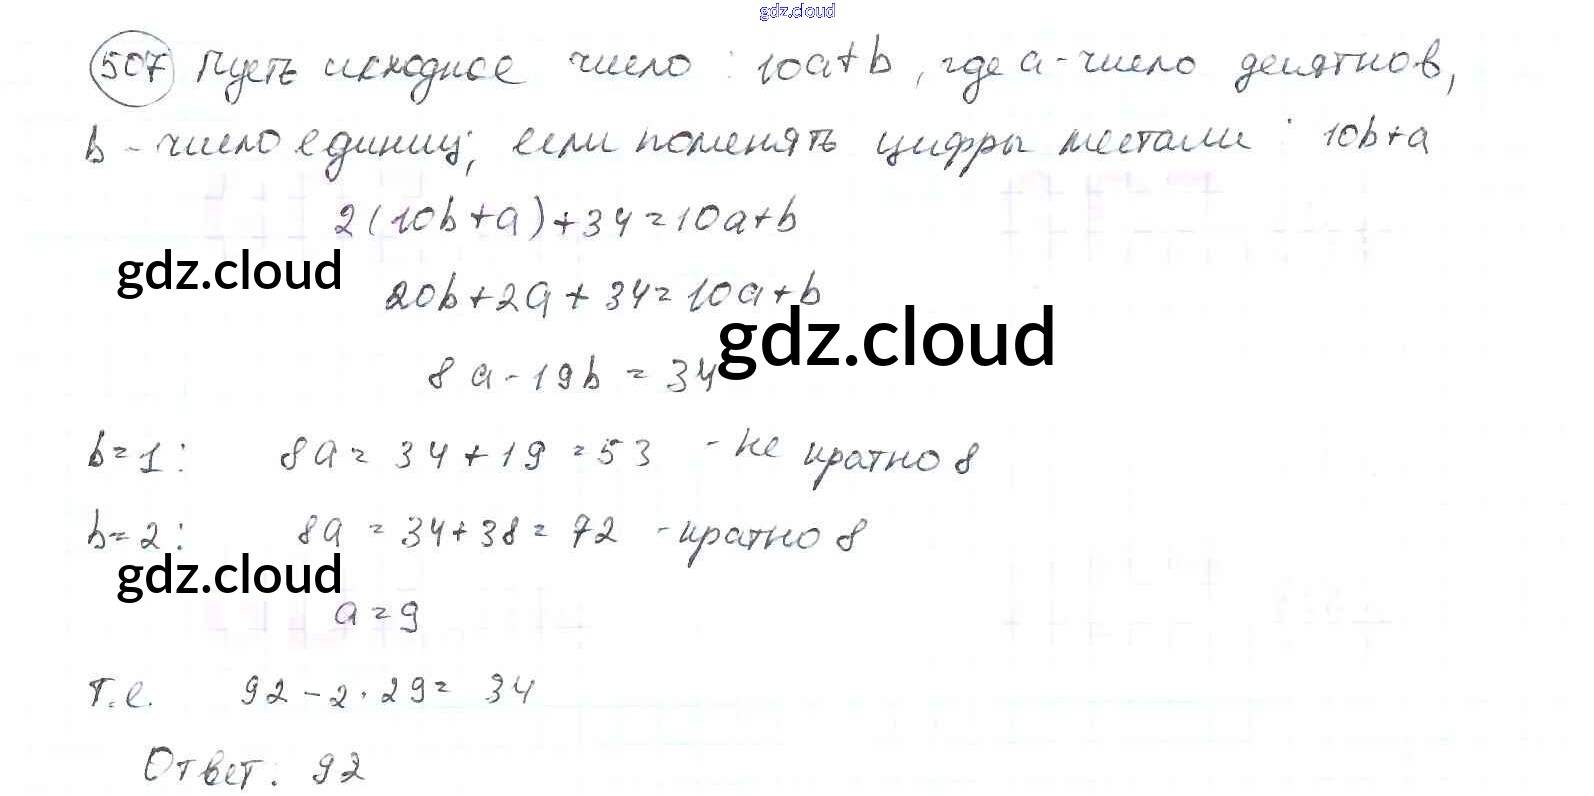 gdz.cloud
507 Пусть исходное число : 10a+b, где a - число десятков,
b - число единиц; если поменять цифры местами : 10b+a
2(10b+a)+34=10a+b
gdz.cloud
20b+2a+34=10a+b
gdz.cloud
8a-19b=34
b=1: 8a=34+19=53 - не кратно 8
b=2: 8a=34+38=72 - кратно 8
gdz.cloud
a=9
т.е. 92-2·29=34
Ответ: 92